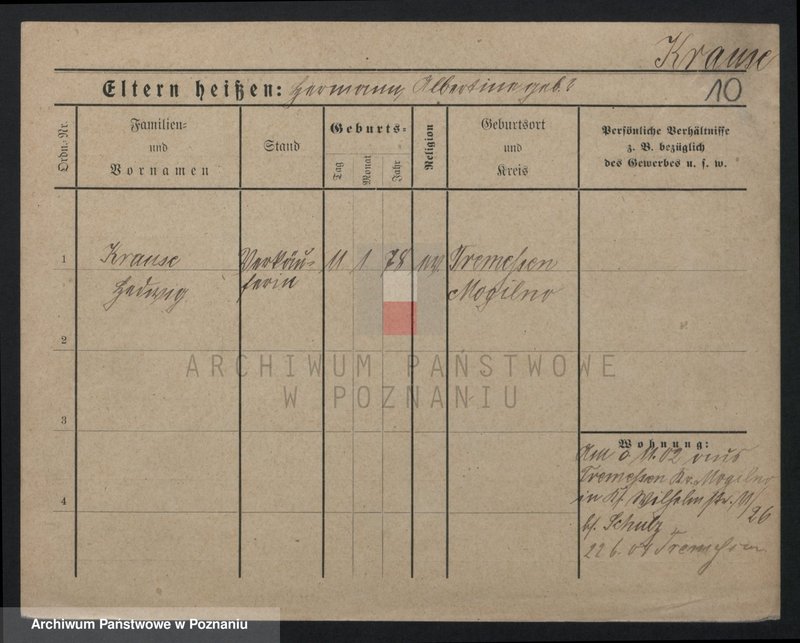 Krause
Eltern heißen: Hermann, Albertine geb.?
10
Ordn.-Nr.
Familien-
und
Vornamen
Stand
Geburts-
Tag
Monat
Jahr
Religion
Geburtsort
und
Kreis
Persönliche Verhältnisse
z. B. bezüglich
des Gewerbes u. s. w.
1
Krause
Hedwig
Verkäu-
ferin
11
1
78
ev.
Tremessen
Mogilno
2
3
4
ARCHIWUM PAŃSTWOWE
W POZNANIU
Wohnung:
Am 11.02 aus
Tremessen Kr. Mogilno
in Wilhelmstr.
26
bf. Schulz
22 6. 04 Tremessen
Archiwum Państwowe w Poznaniu